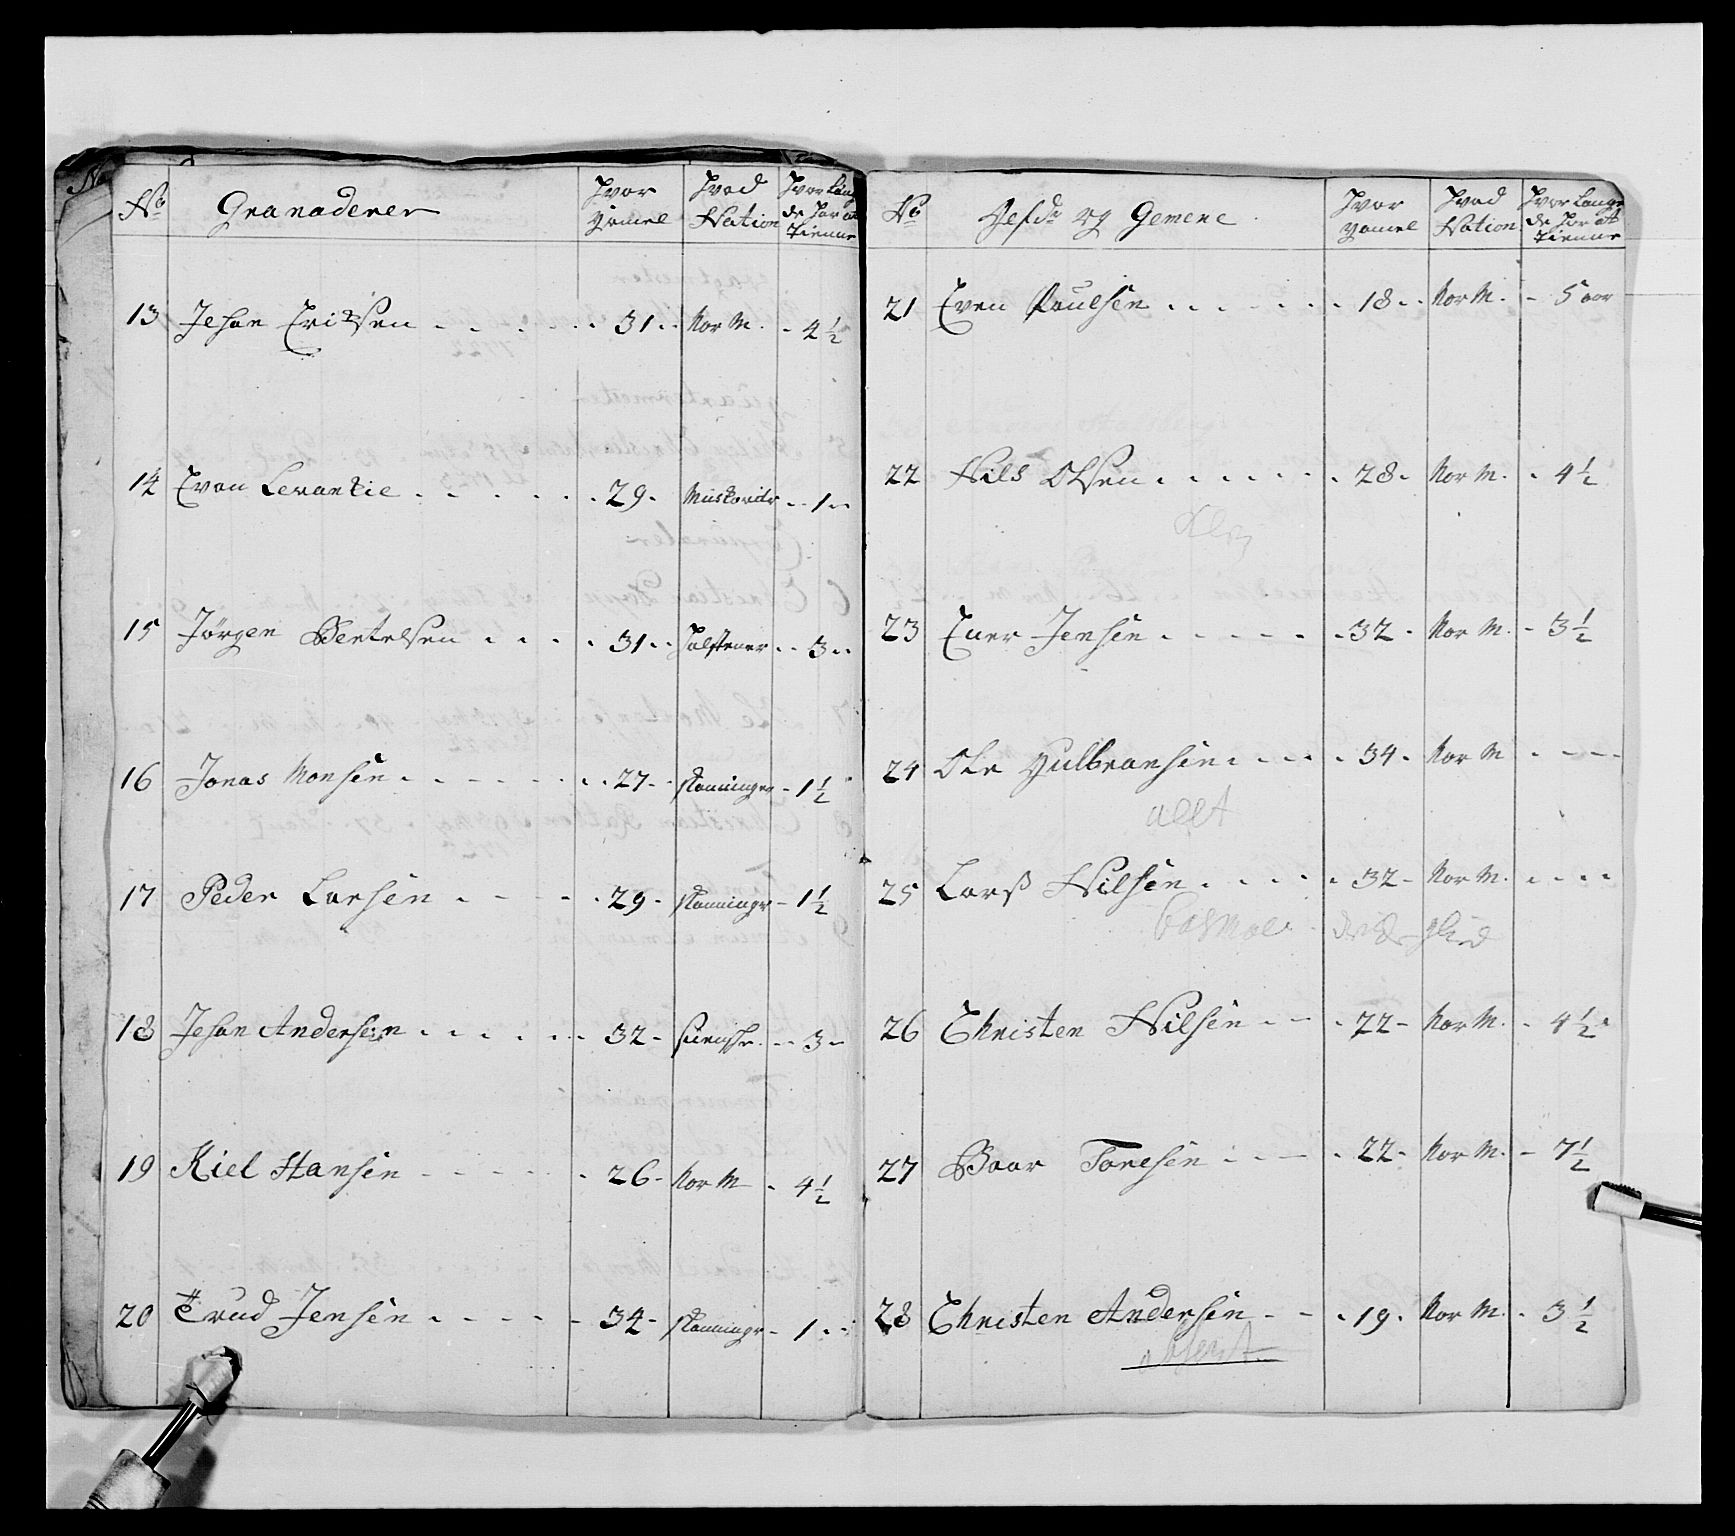 No Granaderer Hvor Gamel Hvad Nation Hvor Lang de har at Tienne
13 Johan Eriksen 31 Nor M. 4 1/2
14 Evan Levantie 29 Muskovitr 1
15 Jørgen Bertelsen 31 Holstener 3
16 Jonas Monsen 27 skaaninger 1 1/2
17 Peder Larsen 29 skaaningr 1 1/2
18 Johan Andersen 32 3
19 Kiel Hansen 26 Nor M 4 1/2
20 Trud Jensen 34 skaaningr 1
No og Gemene Hvor gamel Hvad Nation Hvor Lange de har att Tienne
21 Even Paulsen 18 Nor M. 5 aar
22 Nils Olsen 28 Nor M. 4 1/2
23 Ener Jensen 32 Nor M. 3 1/2
24 Ole Gulbransen 34 Nor M
25 Larß Nilsen 32 Nor M.
26 Christen Nilsen 22 Nor M. 4 1/2
27 Baar Toresen 22 Nor M. 7 1/2
28 Christen Andersen 19 Nor M. 3 1/2